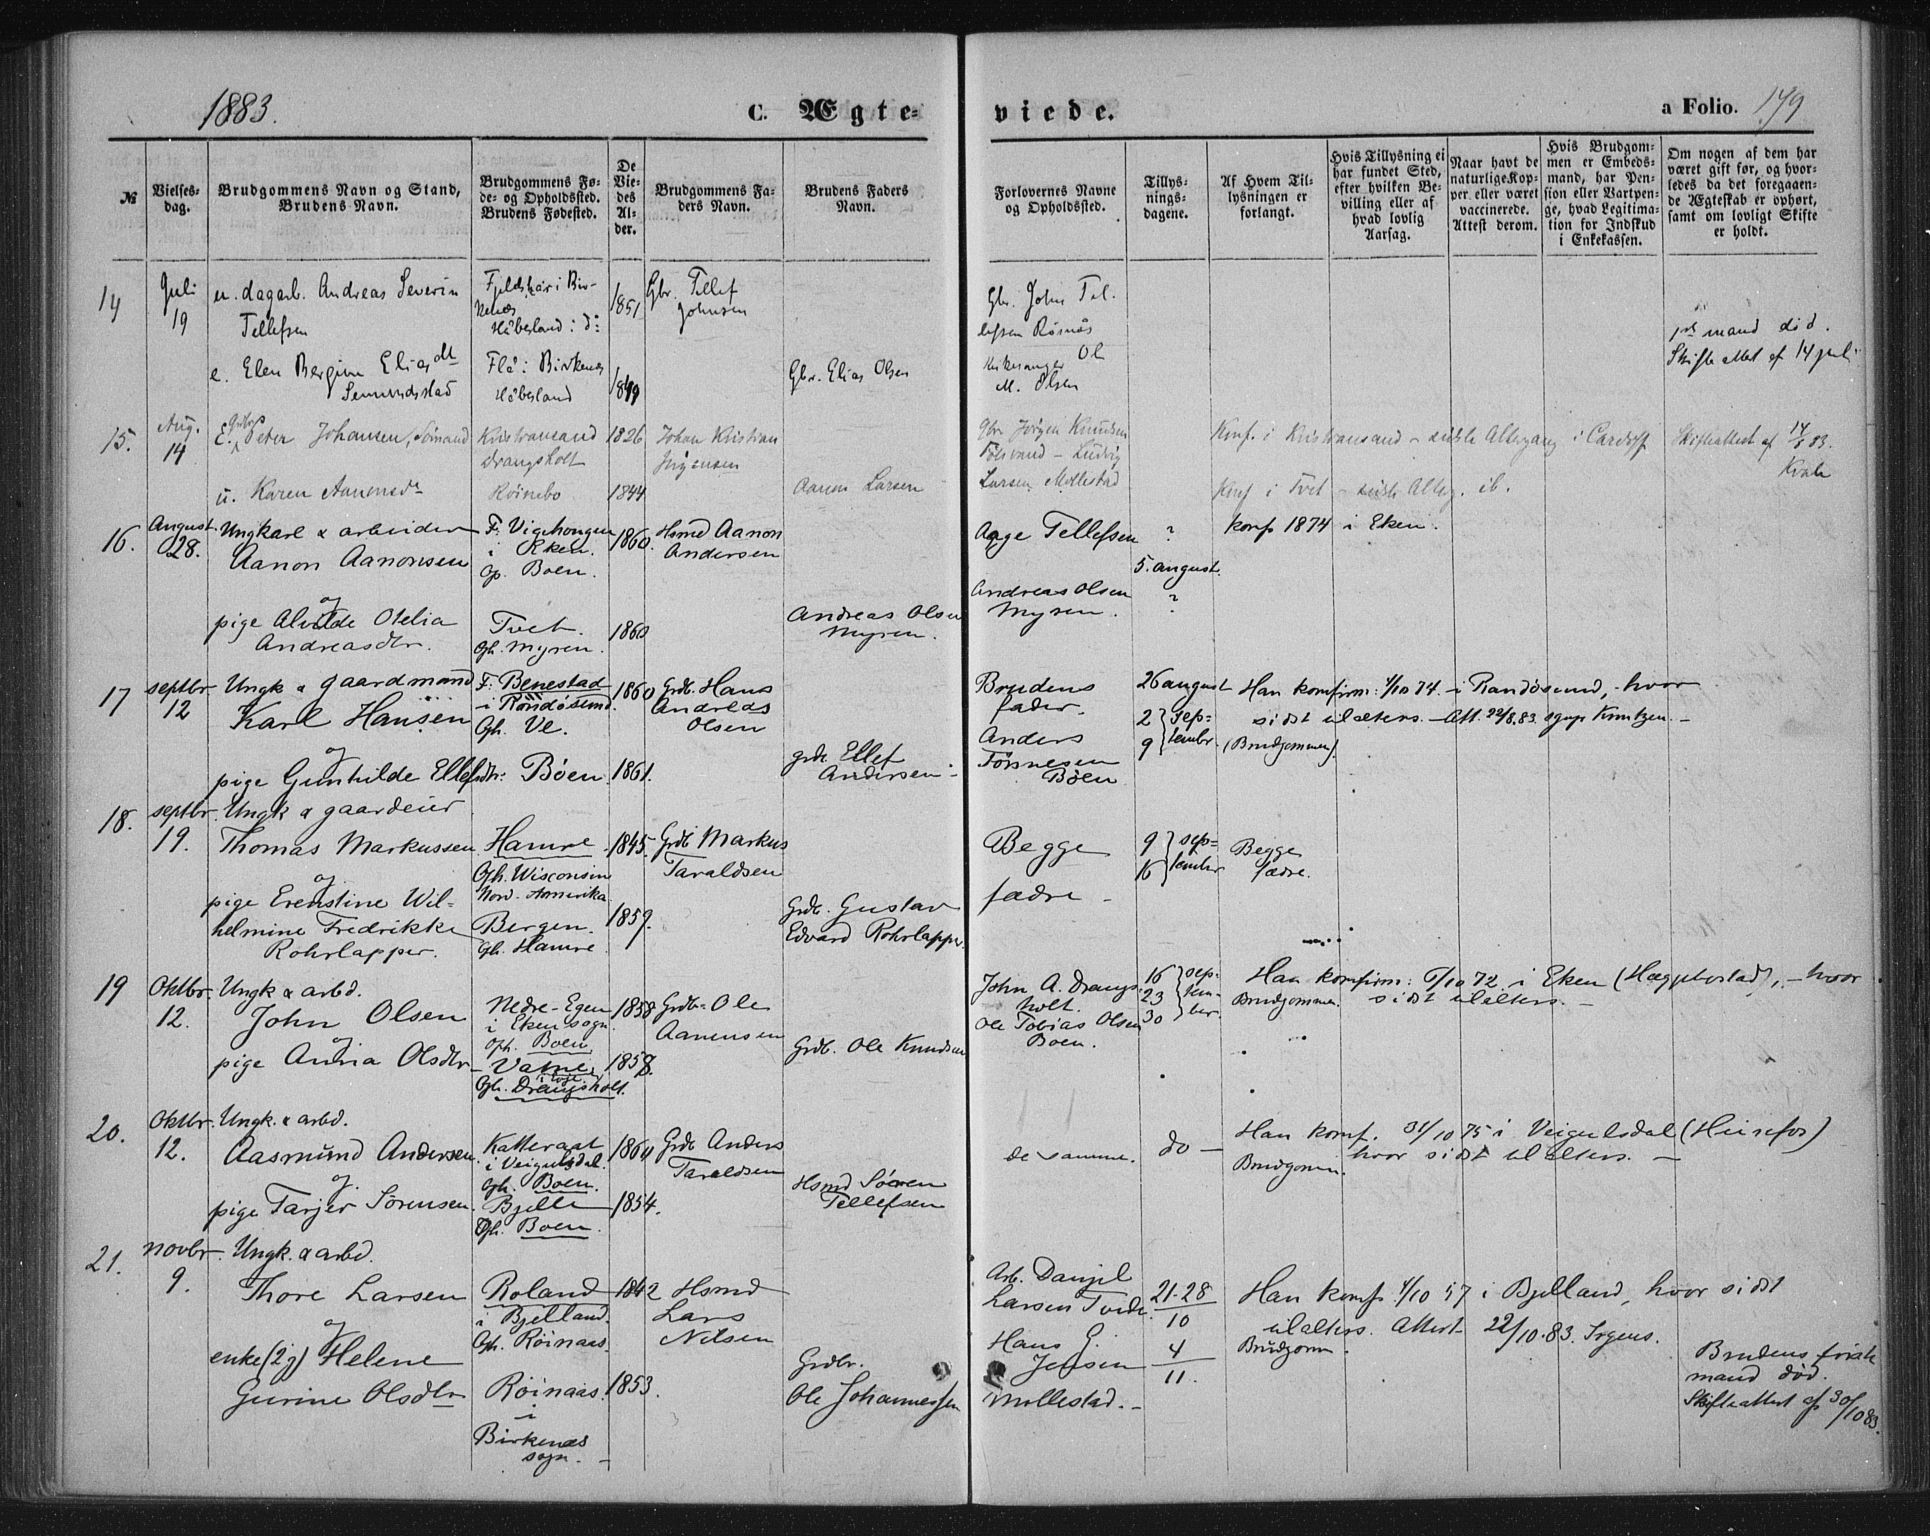 1883.
C. Ægte-
viede.
a Folio. 179
№
Vielses-
dag.
Brudgommens Navn og Stand,
Brudens Navn.
Brudgommens Fø-
de- og Opholdssted.
Brudens Fødested.
De
Vie-
des
Al-
der.
Brudgommens Fa-
ders Navn.
Brudens Faders
Navn.
Forlovernes Navne
og Opholdssted.
Tillys-
nings-
dagene.
Af Hvem Til-
lysningen er
forlangt.
Hvis Tillysning ei
har fundet Sted,
efter hvilken Be-
villing eller af
hvad lovlig
Aarsag.
Naar havt de
naturlige Kop-
per eller været
vaccinerede.
Attest derom.
Hvis Brudgom-
men er Embeds-
mand, har Pen-
sion eller Vartpen-
ge, hvad Legitima-
tion for Indskud
i Enkekassen.
Om nogen af dem har
været gift før, og hvor-
ledes da det foregaaen-
de Ægteskab er ophørt,
samt om lovligt Skifte
er holdt.
14
Juli
19
u. dagarb. Andreas Severin
Tellefsen
e. Elen Bergine Elias dtr
Semundstad
Fjeldskar i Bir-
kenæs
Håbesland i do:
Flå i Birkenes
Håbesland
1851
1849
Gbr. Tellef
Johnsen
Gbr. Elias Olsen
Gbr. John Tel-
lefsen Røinås
Kirkesanger Ol
M. Olsen
1ste mand død.
Skifteattest af 14 juli
15.
Aug.
14
E. Peter Johansen, Sømand
u. Karen Aanensdr
Kristiansand
Drangsholt
Røinebo
1826
1844
Johan Kristian
Jörgensen
Aanon Larsen
Gbr Jörgen Knudsen
Ludvig
Larsen Mollestad
Konf. i Kristiansand - sidste Altergang i Cardiff
Konf i Tvet - sidste Alterg. ib.
Skifteattest af 14/8 83.
Kvale
16.
August
28.
Ungkarl & arbeider
Aanon Aanonsen
og
pige Alvilde Otelia
Andreasdtr.
F. Vigehougen
i Eken.
Op. Boen.
Tvet.
Oph. Myren.
1860.
1860
Hsmd Aanon
Andersen
Andreas Olsen
Myren.
Aage Tellefsen
Andreas Olsen
Myren.
?
5. august.
?
konf 1874 i Eken.
17
septbr
12
Ungk & gaardmand
Karl Hansen
og
pige Gunhilde Ellefsdtr:
F: Benestad
i Randøsund.
Oph. Ve.
Boen
1860
1861.
Grdb. Hans
Andreas
Olsen
grdb Ellef
Andersen -
Brudens
fader.
Anders
Tønnesen
Boen
26 august
2 } sep-
9 } tember
Han konfirm: 4/10 74. i Randøsund, - hvor
sidst til alters. - Att. 22/8.83. sgnp Knutzen. -
(Brudgommen).
18.
septbr.
19.
Ungk & gaardeier
Thomas Markussen
og
pige Erenstine Wil-
helmine Fredrikke
Rohrlapper.
Hamre
Oph. Wisconsin
Nord-Amerika
Bergen.
Oph. Hamre.
1845.
1859.
Grdb Markus
Taraldsen
Grdb. Gustav
Edvard Rohrlapper.
Begge
fædre -
9 } sep-
16 } tember
Begge
fædre.
19
Oktbr.
12.
Ungk & arbd.
John Olsen
og
pige Anna Olsdtr
Nedre-Egen
i Eken sogn
Oph. Boen
Vatne
Oph. Drangsholt.
1858
1858.
Grdb. Ole
Aanensen
Grdb. Ole Knudsen
John A. Drangs-
holt.
Ole Tobias Olsen
Boen.
16 } sep-
23 } tem-
30 } ber.
Han konfirm: 6/10 72. i Eken (Hæggebostad), - hvor
Brudgommen. sidst til alters. -
20.
Oktbr.
12.
Ungk. & arbd.
Aasmund Andersen
og
pige Tarjer Sørensen.
Katteraat
i Veigulsdal.
Oph. Boen.
Bjelle
Oph. Boen.
1860
1854.
Grdb Anders
Taraldsen
Hsmd Søren
Tellefsen
de samme.
do -
Han konf. 31/10 75 i Veigulsdal (Heirefos)
hvor sidst til alters. -
Brudgomm.
21.
Novbr.
9.
Ungk. & arbd.
Thore Larsen
og
enke (2 g) Helene
Gurine Olsdtr
Roland
i Bjelland.
Oph. Røinaas.
Røinaas.
i
Birkenæs
sogn. -
1842
1853.
Hsmd
Lars
Nilsen
Grdbr.
Ole Johannessen
Arb. Danjel
Larsen Tveide
Hans G.
Jensen
Mollestad. -
21-28
10
4
11.
Han konf 4/10 57 i Bjelland, hvor sidst
til alters. Attest 22/10.83. Irgens.
Brudgom.
Brudens første
mand død.
Skifteattest af 30/10 83.